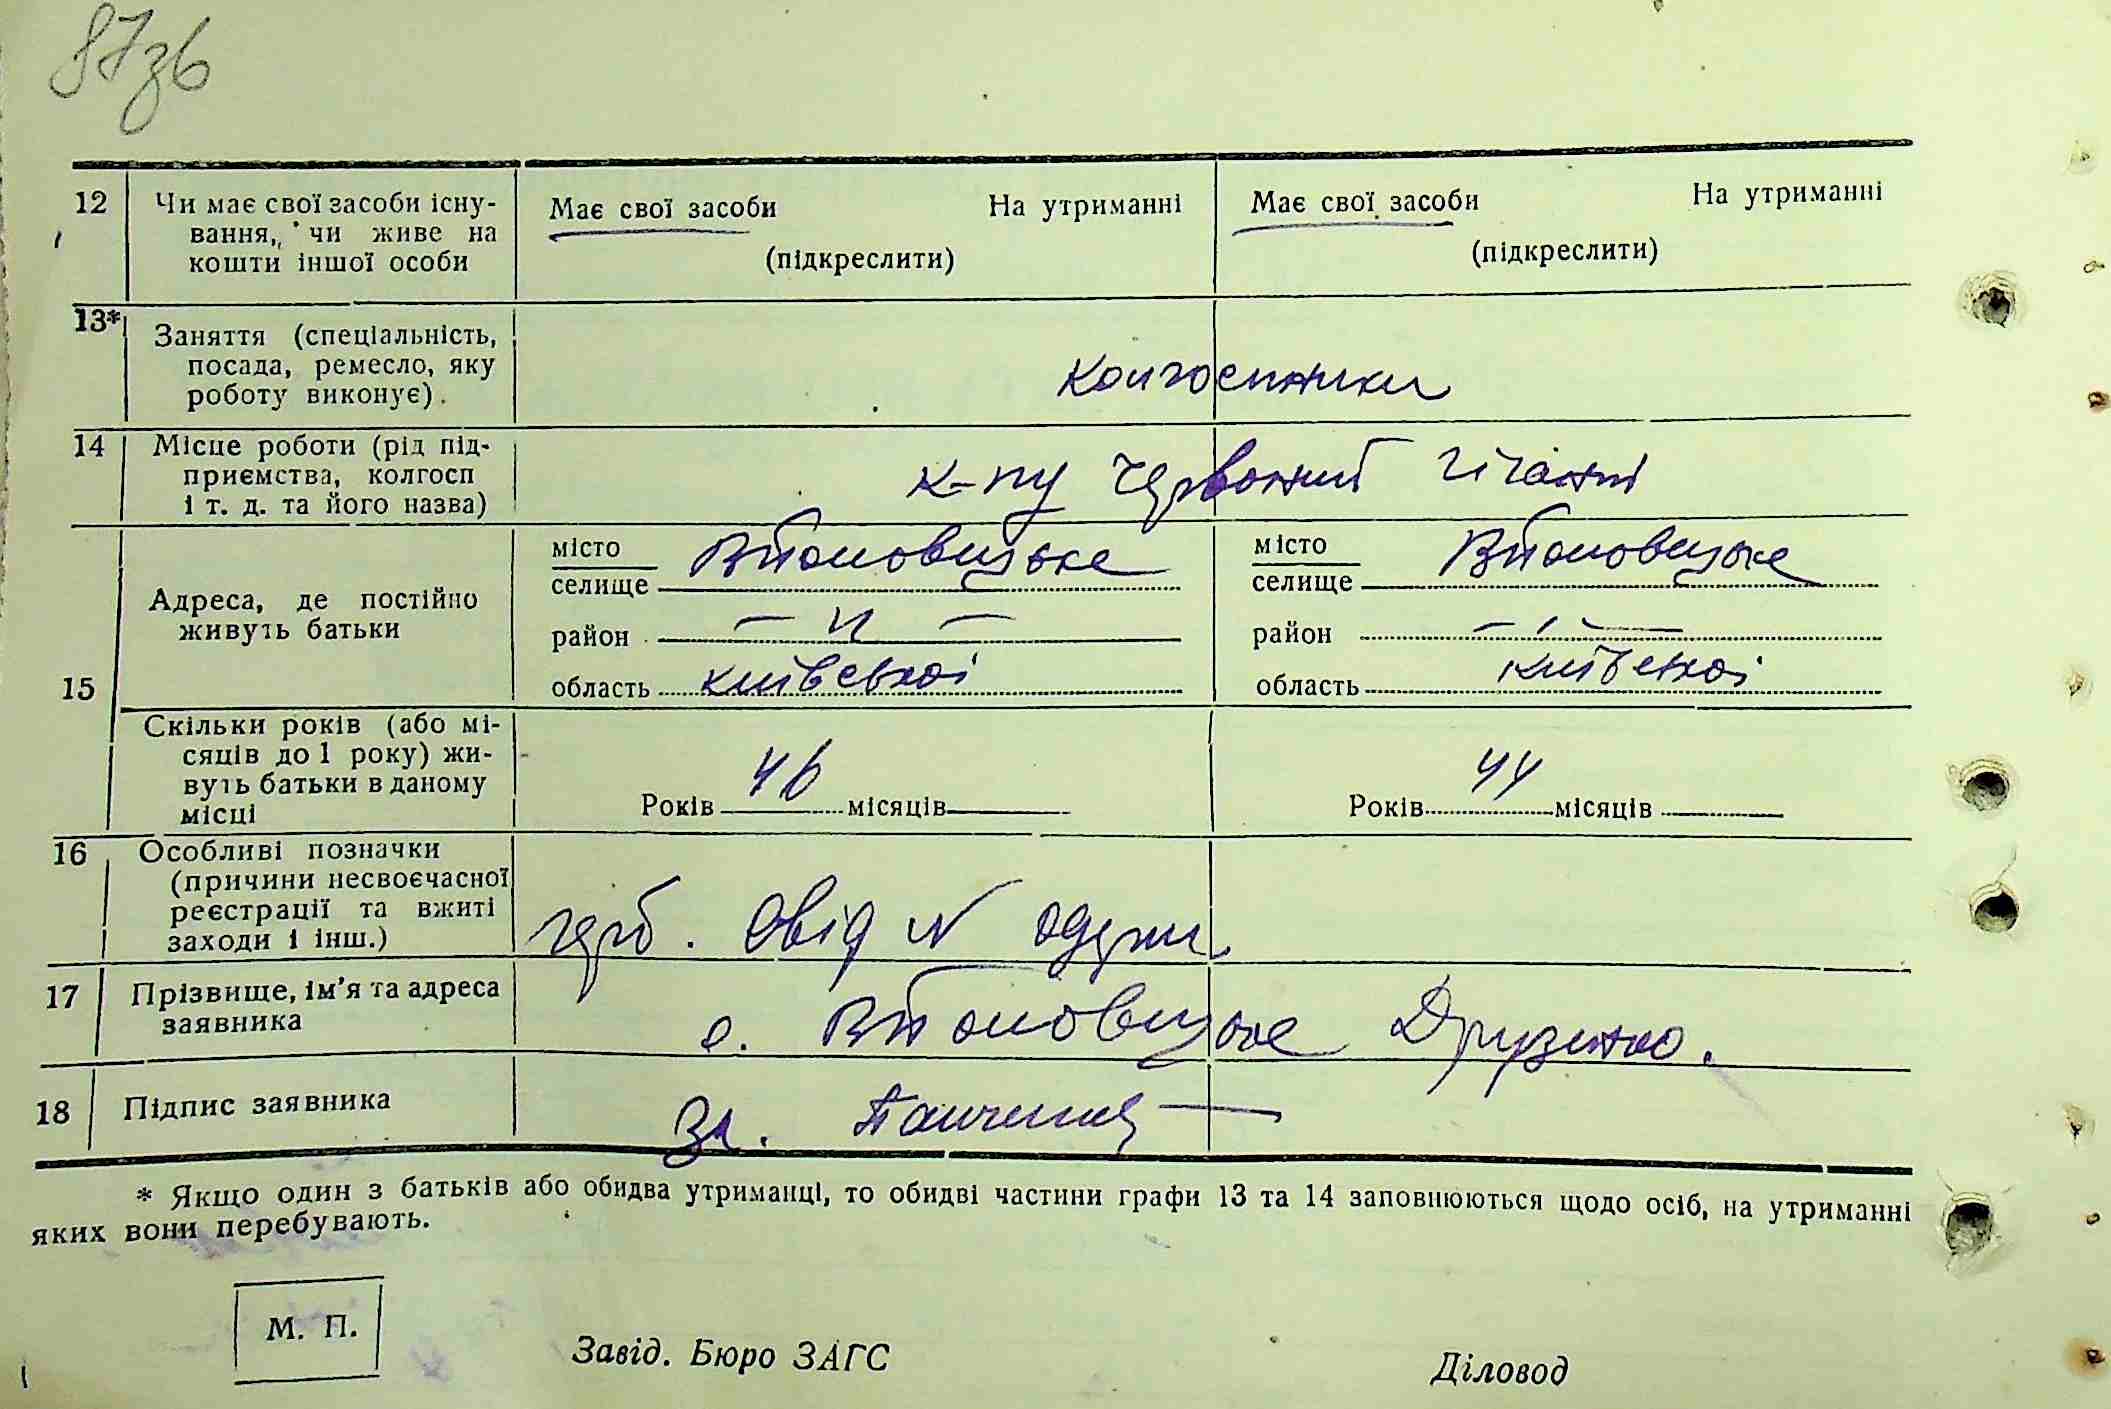 87зв
12 Чи має свої засоби існу-
вання, чи живе на
кошти іншої особи
Має свої засоби На утриманні
(підкреслити)
Має свої засоби На утриманні
(підкреслити)
13* Заняття (спеціальність,
посада, ремесло, яку
роботу виконує).
колгоспники
14 Місце роботи (рід під-
приємства, колгосп
і т. д. та його назва)
к-пу Червоний гігант
15
Адреса, де постійно
живуть батьки
місто
селище
район – " –
область київської
місто
селище
район – " –
область київської
Скільки років (або мі-
сяців до 1 року) жи-
вуть батьки в даному
місці
Років 46 місяців
Років 44 місяців
16 Особливі позначки
(причини несвоєчасної
реєстрації та вжиті
заходи і інш.)
герб. свід N одерж.
17 Прізвище, ім'я та адреса
заявника
с.
18 Підпис заявника
За.
* Якщо один з батьків або обидва утриманці, то обидві частини графи 13 та 14 заповнюються щодо осіб, на утриманні
яких вони перебувають.
М. П.
Завід. Бюро ЗАГС
Діловод